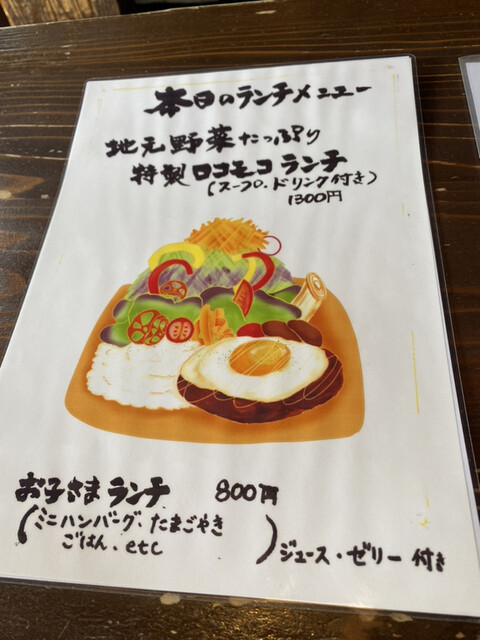 本日のランチメニュー
地元野菜たっぷり
特製ロコモコランチ
(スープ、ドリンク付き)
1300円
お子さまランチ 800円
(ミニハンバーグ、たまごやき
ごはん、etc ) ジュース・ゼリー付き